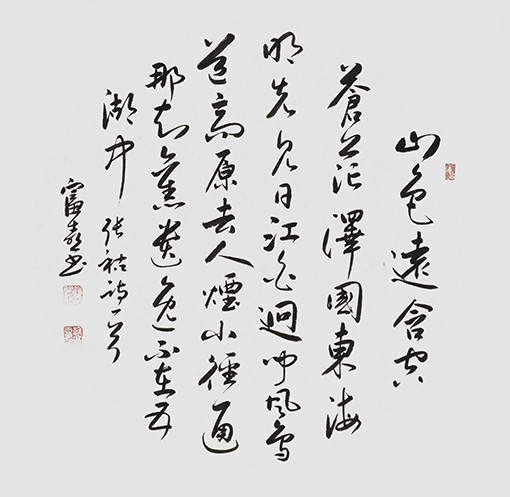 山色遠含空
蒼茫澤國東海
明先見日江白迥聞風鳥
道高原去人煙小徑通
那知舊遺逸不在五
湖中 張祜詩一首
富書